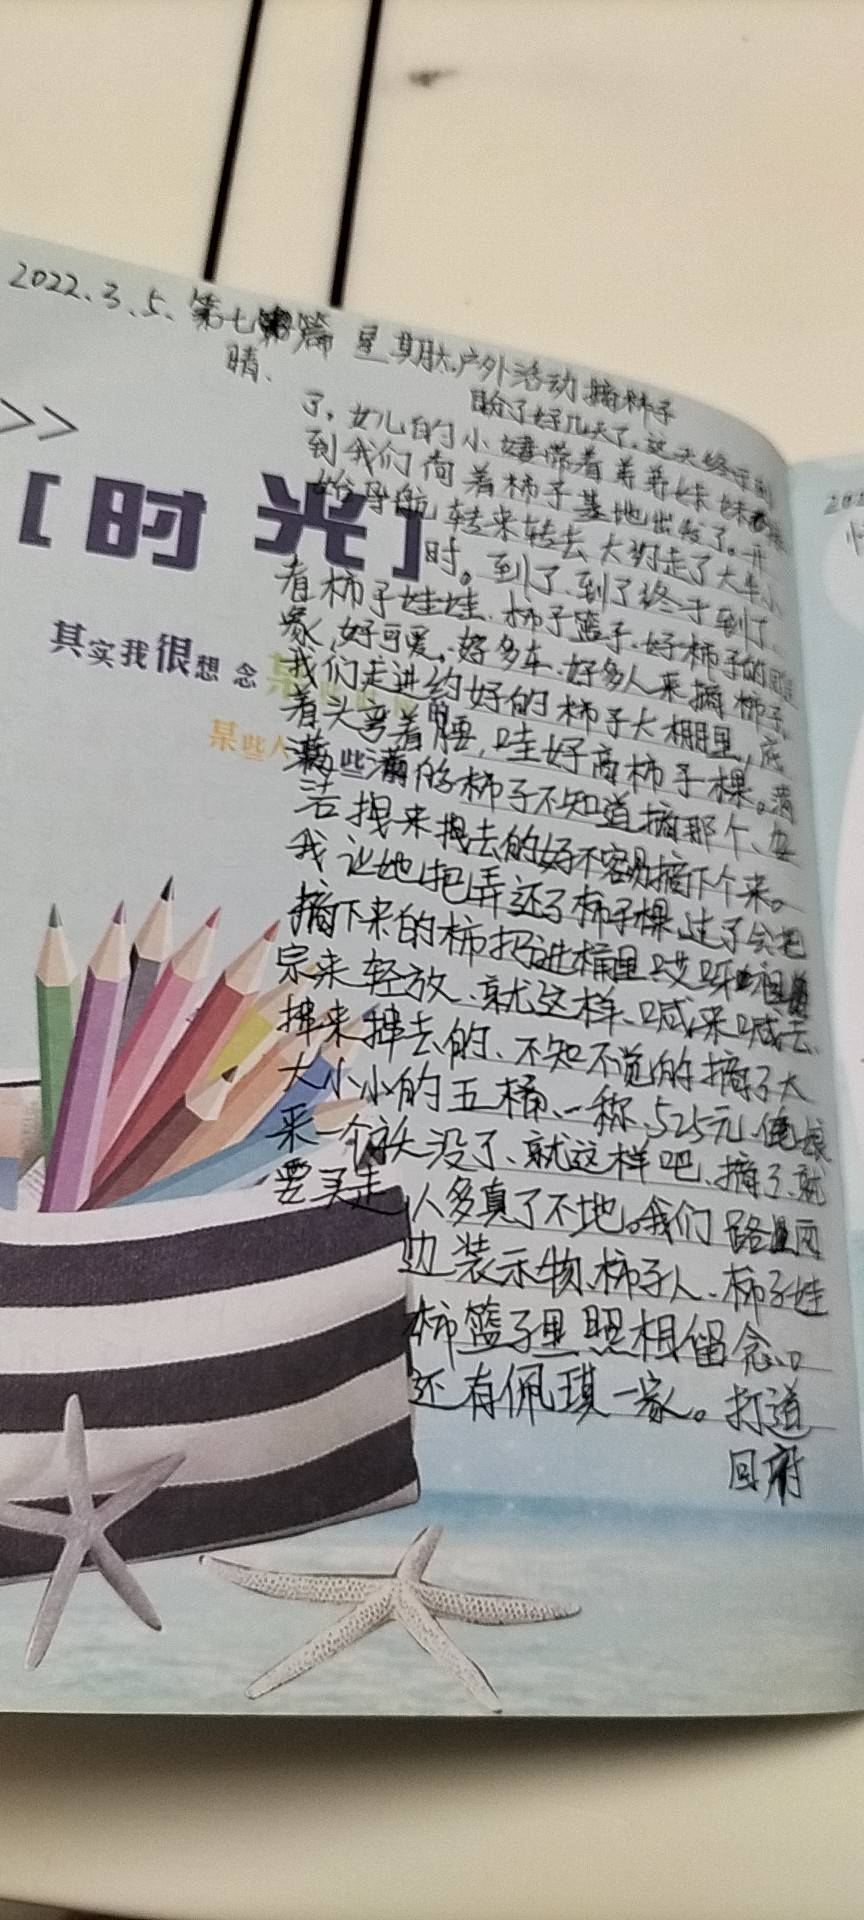 2022.3.5.第七篇 星期六.户外活动摘柿子
晴.
盼了好几天了.这天终于到
了.女儿的小婶带着养养妹妹
到我们向着柿子基地出发了。开
始导航转来转去大约走了大半小
时。到了.到了终于到了.
>>
[时光]
看柿子娃娃.柿子篮子.好柿子的
家,好可爱。好多车.好多人来摘柿子.
其实我很想念
我们走进约好的柿子大棚里,底
某些人
着头弯着腰,哇好高柿子棵。满
满的柿子不知道摘那个.
洁拽来拽去的好不容易摘下个来。
我让她把弄还了柿子棵.过了会把
摘下来的柿扔进桶里哎呀
轻来轻放.就这样.喊来喊去.
择来择去的.不知不觉的摘了大
大小小的五桶.一称.525元.
采一个头没了.就这样吧.摘了.就
要买走,人多真了不地。我们路两
边装示物.柿子人.柿子娃
柿篮子里照相留念.
还有佩琪一家。打道
回府